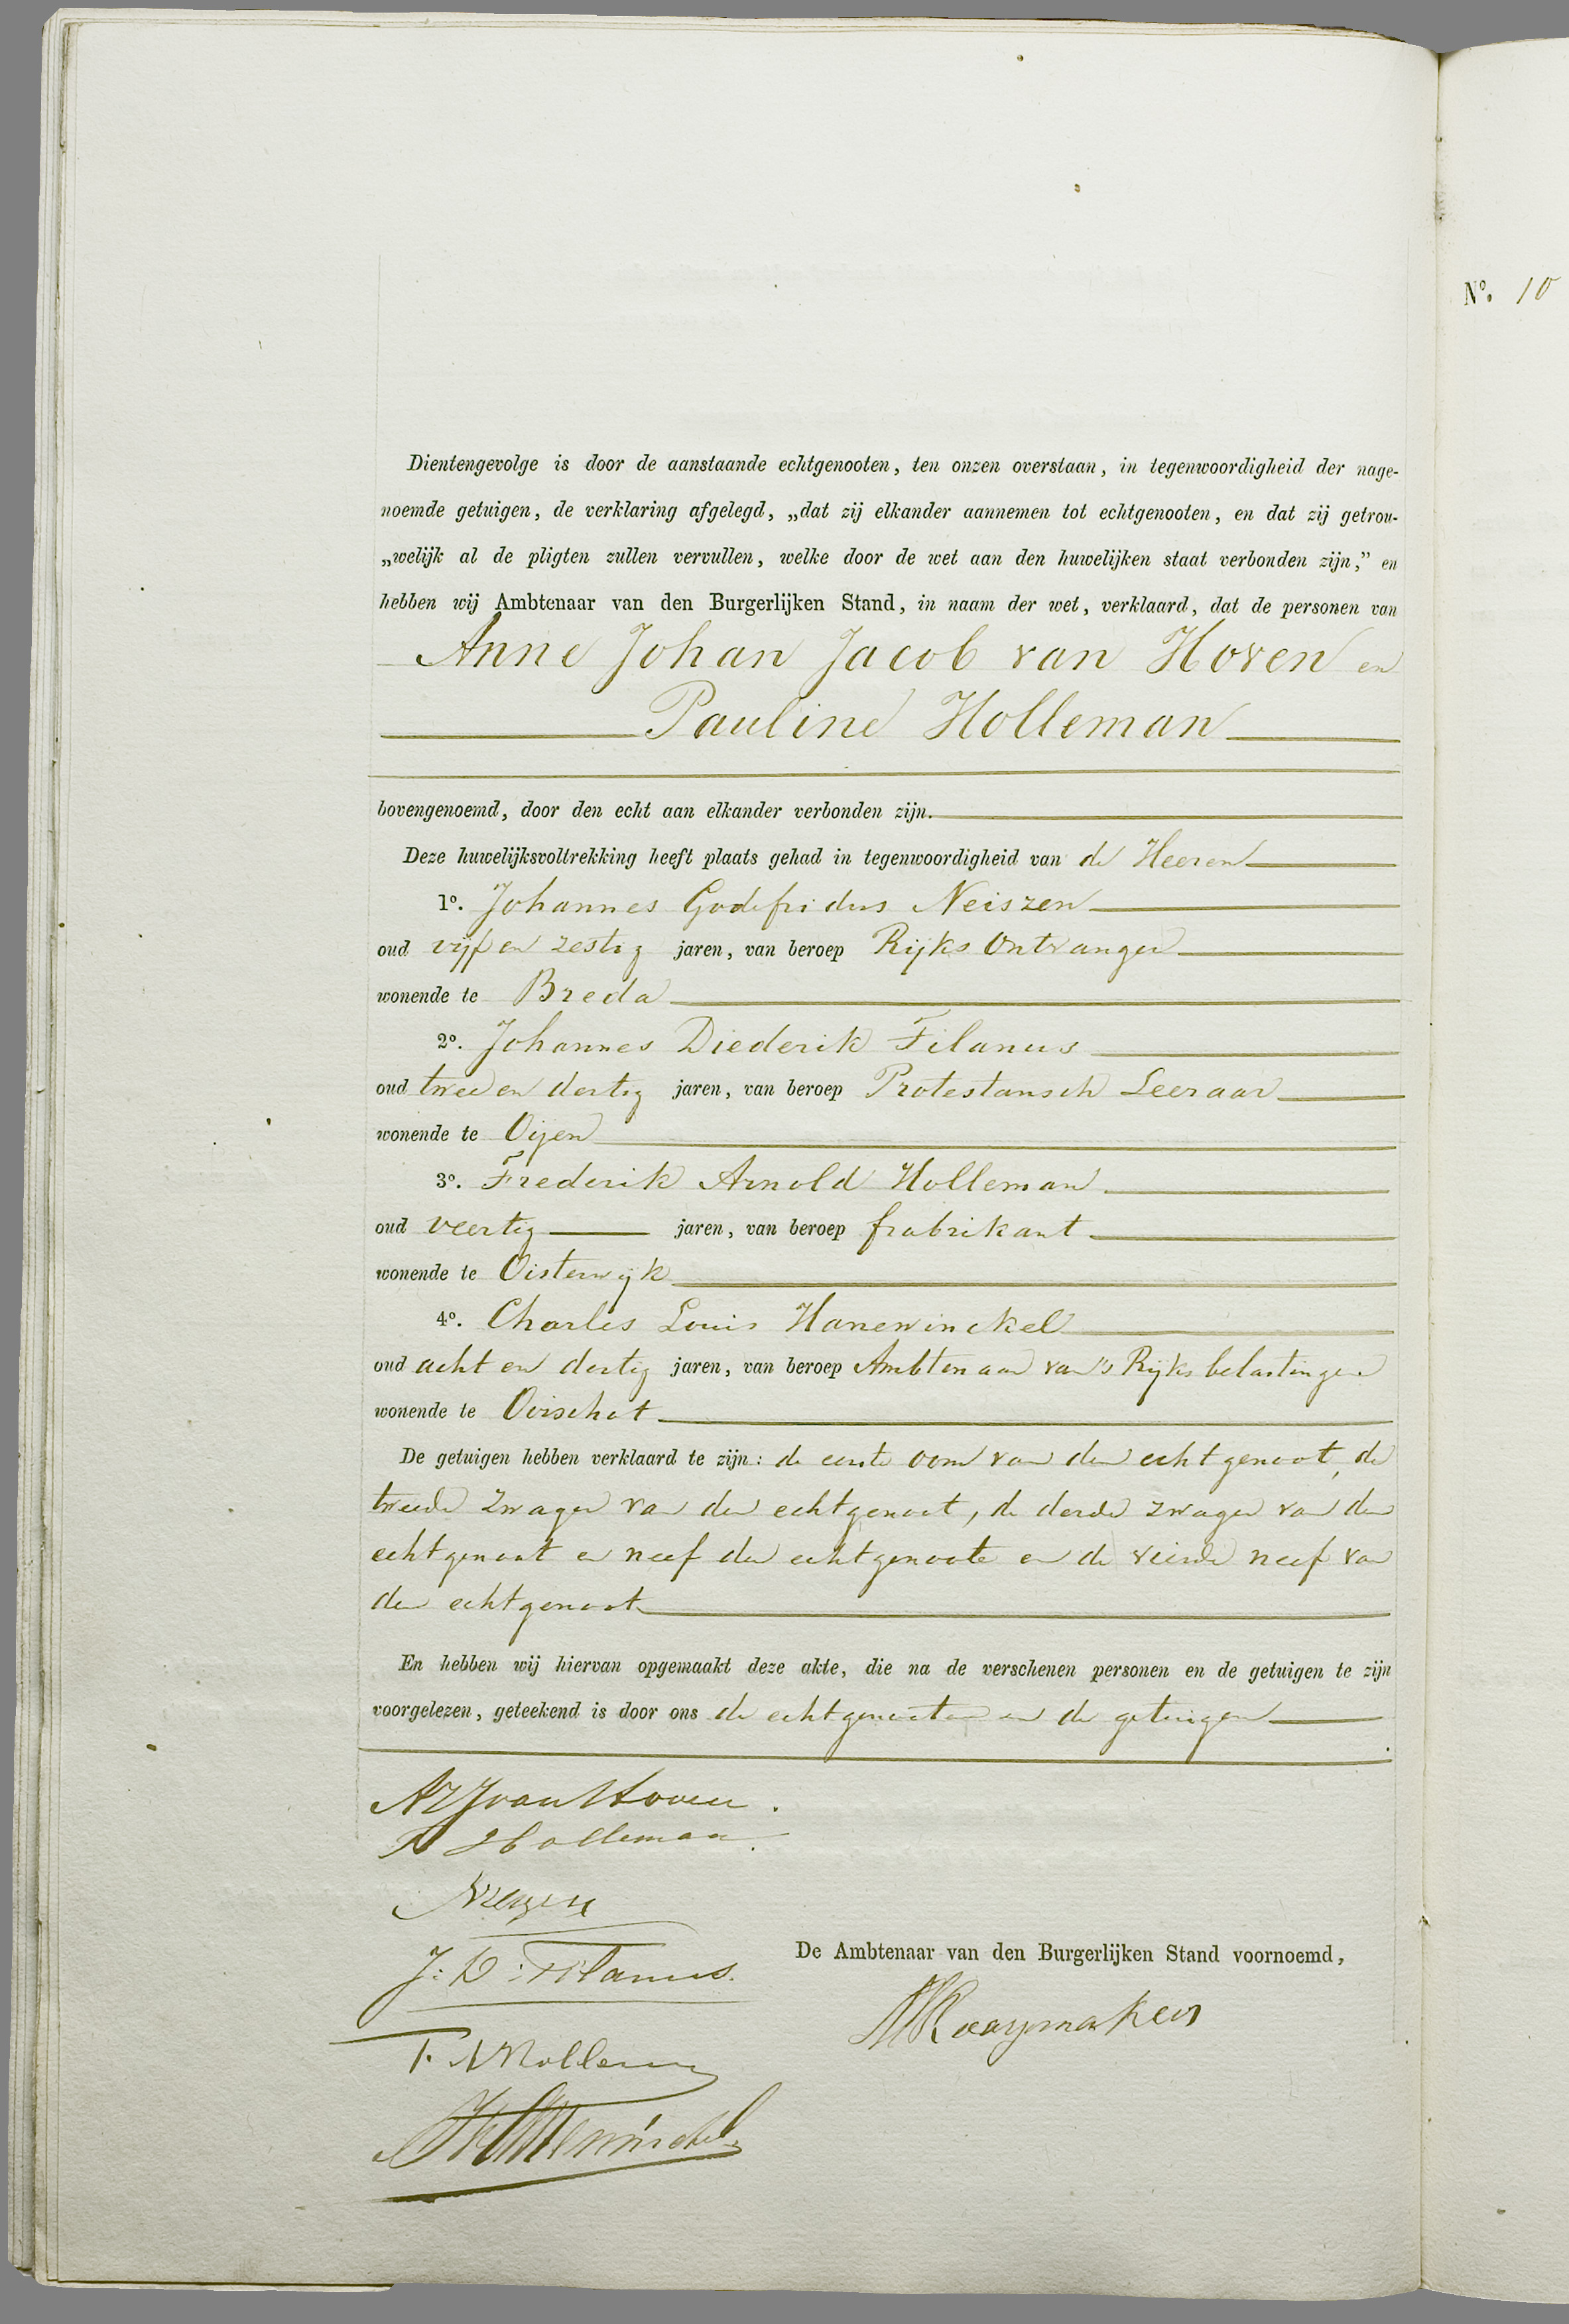 Dientengevolge is door de aanstaande echtgenooten, ten onzen overstaan, in tegenwoordigheid der nage-
noemde getuigen, de verklaring afgelegd, „dat zij elkander aannemen tot echtgenooten, en dat zij getrou-
„welijk al de pligten zullen vervullen, welke door de wet aan den huwelijken staat verbonden zijn,” en
hebben wij Ambtenaar van den Burgerlijken Stand, in naam der wet, verklaard, dat de personen van
Anne Johan Jacob van Hoven en
Pauline Holleman
bovengenoemd, door den echt aan elkander verbonden zijn.
Deze huwelijksvoltrekking heeft plaats gehad in tegenwoordigheid van de Heeren
1º. Johannes Godefridus Neiszen
oud vijf en zestig jaren, van beroep Rijks Ontvanger
wonende te Breda
2º. Johannes Diederik Filanus
oud twee en dertig jaren, van beroep Protestansch Leeraar
wonende te Oijen
3º. Frederik Arnold Holleman
oud veertig jaren, van beroep frabrikant
wonende te Oisterwijk
4º. Charles Louis Hanewinckel
oud acht en dertig jaren, van beroep Ambtenaar van 's Rijks belastingen
wonende te Oirschot
De getuigen hebben verklaard te zijn: de eerste oom van den echtgenoot, de
tweede zwager van den echtgenoot, de derde zwager van den
echtgenoot en neef der echtgenoote en de vierde neef van
den echtgenoot
En hebben wij hiervan opgemaakt deze akte, die na de verschenen personen en de getuigen te zijn
voorgelezen, geteekend is door ons de echtgenooten en de getuigen
AJJ van Hoven.
P Holleman.
J: D: Filanus.
De Ambtenaar van den Burgerlijken Stand voornoemd,
F. A Holleman
Nº. 10